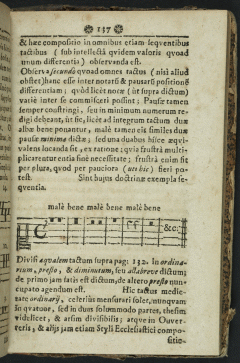 137
& hæc compositio in omnibus etiam sequentibus
tactibus ( sub intellectâ quidem valoris quoad
unum differentiâ ) observanda est.
Observa secundò quoad omnes tactus ( nisi aliud
obstet ) hanc esse inter notas & pausas positionis
differentiam ; quòd licet notæ ( ut supra dictum )
variè inter se commisceri possint ; Pausæ tamen
semper constringi, seu in minimum numerum re-
digi debeant, ut sic, licèt ad integrum tactum duæ
albæ bene ponantur, malè tamen eis similes duæ
pausæ minimæ dictæ ; sed una duabus hisce æqui-
valens locanda sit, ex ratione ; quia frustrà multi-
plicarentur entia sine necessitate ; frustrà enim sit
per plura, quod per pauciora ( ut hic ) fieri po-
test. Sint hujus doctrinæ exempla se-
quentia.
malè bene malè bene malè bene
&c.
Divisi æqualem tactum supra pag: 132. in ordina-
rium, presto, & diminutum, seu allabreve dictum
de primo jam satis est dictum, de altero presto nun-
cupato agendum est. Hic tactus medie-
tate ordinarij, celeriùs mensurari solet, nunquam
in quatuor, sed in duas solummodo partes, thesim
videlicet, & arsim divisibilis, atque in
teris, & alijs jam etiam Styli Ecclesiastici compo-
sitio-